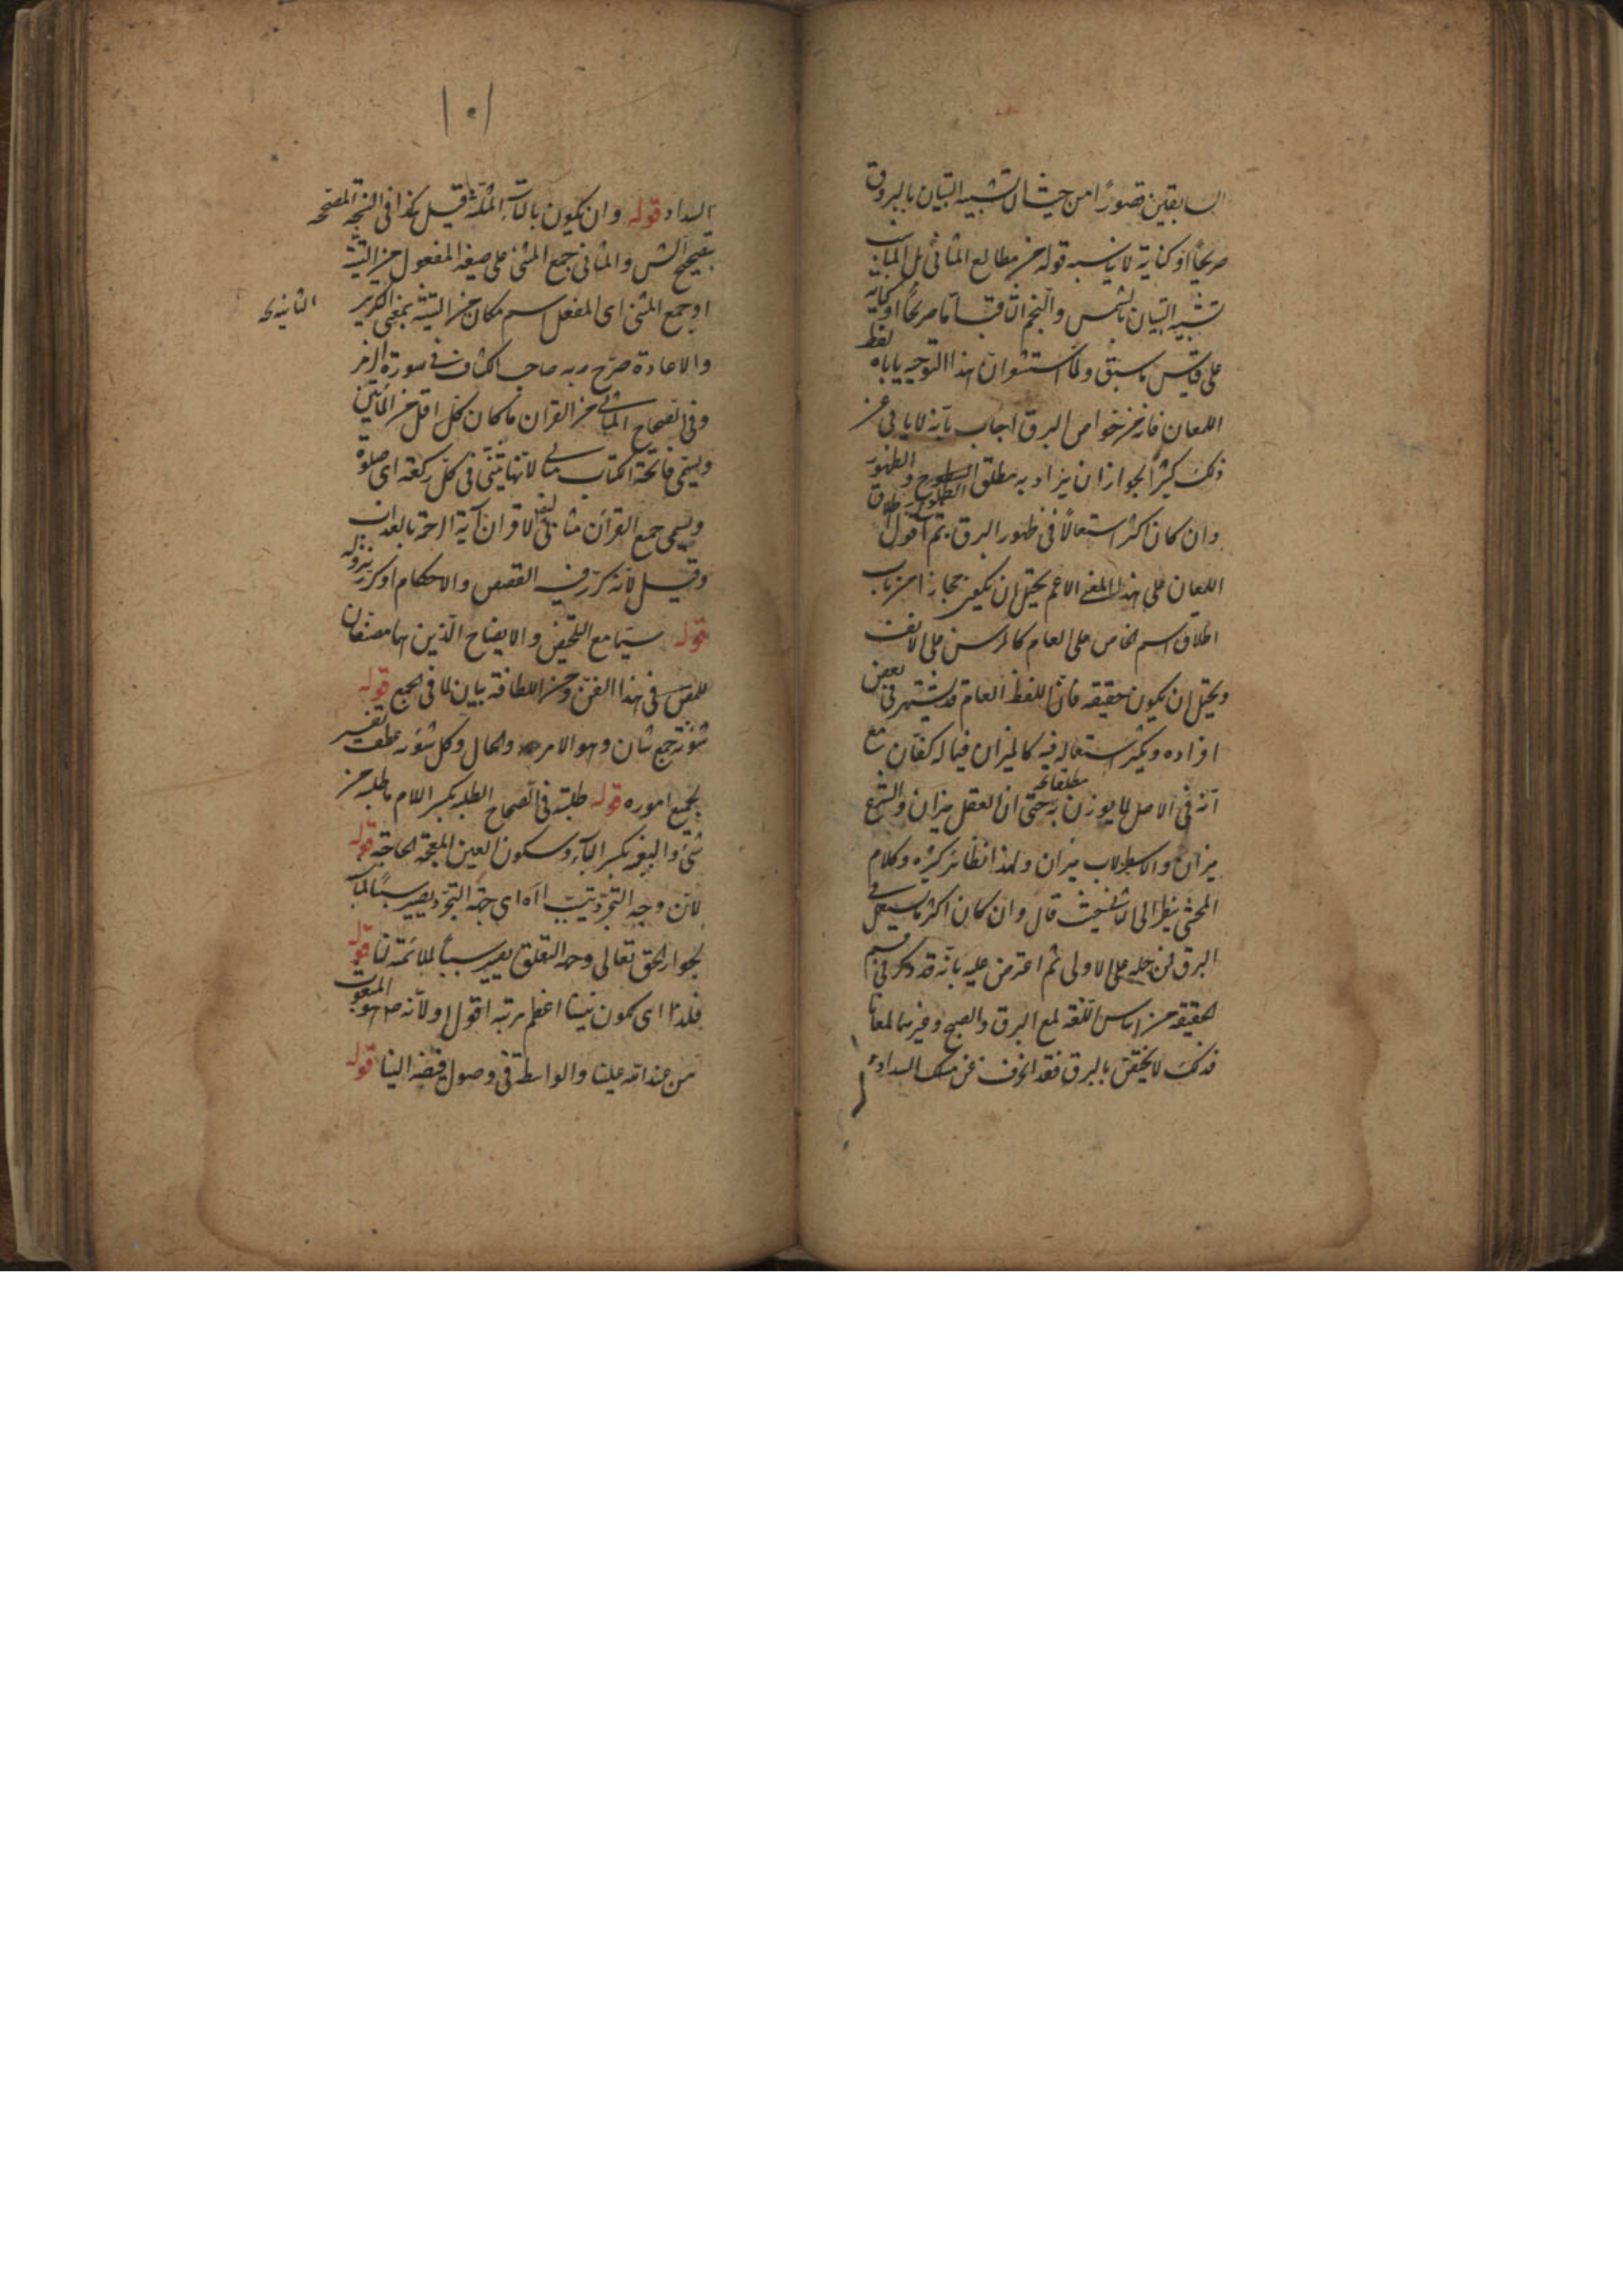 السابقين قصورًا من حيث ان تشبيه التبيان بالبروق
صريحًا او كناية لا يناسبه قوله من مطالع المثاني بل المناسب
تشبيه التبيان بالشمس والنجم الثاقب اما صريحًا او كناية
على قياس ما سبق ولما استشعر ان هذا التوجيه ياباه لفظ
اللمعان فانه من خواص البرق اجاب بانه لا يابى عن
ذلك كثيرًا لجواز ان يراد به مطلق الطلوع والظهور
وان كان اكثر استعمالًا في ظهور البرق ثم اقول اطلاق
اللمعان على هذا المعنى الاعم يحتمل ان يكون مجازا من باب
اطلاق اسم الخاص على العام كالمرسن على الانف
ويحتمل ان يكون حقيقة فان اللفظ العام قد يشتهر في بعض
افراده ويكثر استعماله فيه كالميزان فيما له كفتان مع
انه في الاصل لما يوزن به مطلقا حتى ان العقل ميزان والشرع
ميزان والاسطرلاب ميزان ولهذا نظائر كثيرة وكلام
المحشي ينظر الى الثاني حيث قال وان كان اكثر ما يستعمل في
البرق فمن حمله على الاولى ثم اعترض عليه بانه قد ذكر في قسم
الحقيقة من اساس اللغة لمع البرق والصبح وغيرهما لمعانا
فذلك لا يختص بالبرق فقد انحرف عن مسلك السداد
١٥١
السداد قوله وان يكون بالتاء المثلثة قيل كذا في النسخة المصححة
بتصحيح الش والمثاني جمع المثنى على صيغة المفعول من التثنية
او جمع المثنى اى المفعل اسم مكان من التثنية بمعنى التكرير
الثانية
والاعادة صرح به صاحب الكشاف في سورة الزمر
وفي الصحاح المثاني من القران ما كان كل اقل من المائتين
ويسمى فاتحة الكتاب مثاني لانها تثنى في كل ركعة اى صلوة
ويسمى جميع القرآن مثاني ايضا لاقتران آية الرحمة بالعذاب
وقيل لانه كرر فيه القصص والاحكام او كرر نزوله
قوله سيما مع التلخيص والايضاح الذين هما مصنفان
للمص في هذا الفن ومن اللطافة بيان لما في الجميع قوله
شؤنه جمع شان وهو الامر والحال وكل شؤنه عطف تفسير
لجميع اموره قوله طلبته في الصحاح الطلبة بكسر اللام ما طلبه من
شئ والبغية بكسر الباء وسكون الغين المعجمة الحاجة قوله
لان وجه التجرد يثبت اه اى جهة التجرد يصير سببًا
لجوار الحق تعالى وجهة التعلق يصير سببًا لملائمة لنا قوله
فلذا اى يكون نبينا اعظم مرتبة اقول او لانه ص هو المبعوث
من عند الله علينا والواسطة في وصول فيضه الينا قوله